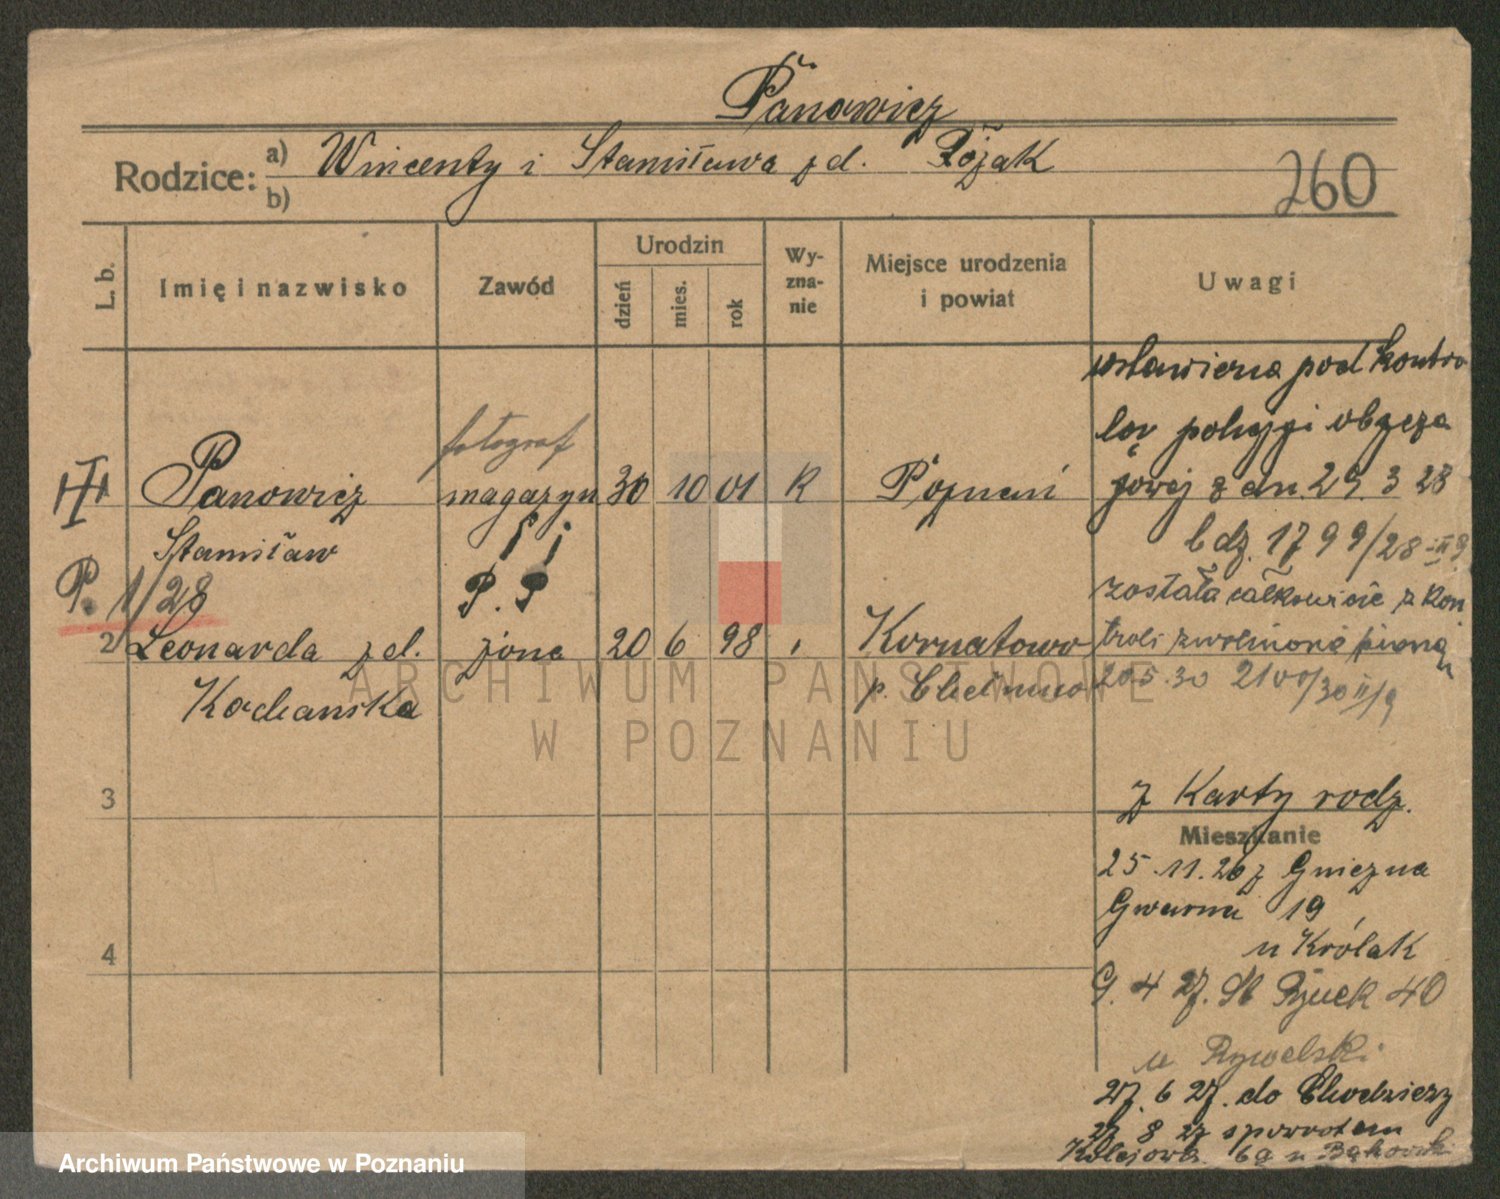 Panowicz
Rodzice: a) Wincenty i Stanisława z d. Różak
b)
260
L. b.
Imię i nazwisko
Zawód
Urodzin
dzień
mies.
rok
Wy-
zna-
nie
Miejsce urodzenia
i powiat
Uwagi
wstawiena pod kontro
lą policyji obycza
jowej z dn. 29. 3 28
l dz. 1799/28
została całkowicie z kon
troli zwolniona
20.5.30 2100/30 II/9
fotograf
Panowicz magazyn 30 10 01 K Poznań
Stanisław
P. 1/28
P. P
2 Leonarda z d. żona 20 6 98 Kornatowo
Kochanska p. Chełmno
ARCHIWUM PAŃSTWOWE
W POZNANIU
3
z Karty rodz.
Mieszkanie
25.11.26 z Gniezna
Gwarna 19
u Królak
4
9. 4 27. St Rynek 40
u Rywelski
27. 6 27. do Chodzieży
27 8 27 spowrotem
Kolejowa 6a u Bąkowski
Archiwum Państwowe w Poznaniu